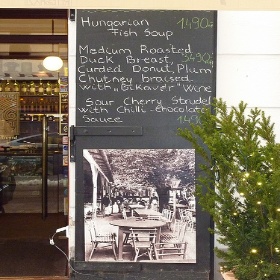 Hungarian 1490.-
Fish Soup
Medium Roasted
Duck Breast, 3490.-
Curded Donut, Plum
Chutney braised
with „Bikavér" Wine
Sour Cherry Strudel
with Chilli-Chocolate
Sauce 149